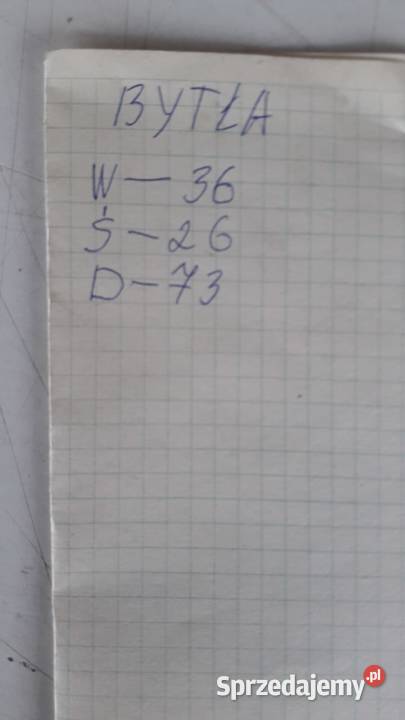 BYTŁA
W - 36
Ś - 26
D - 73
Sprzedajemy.pl